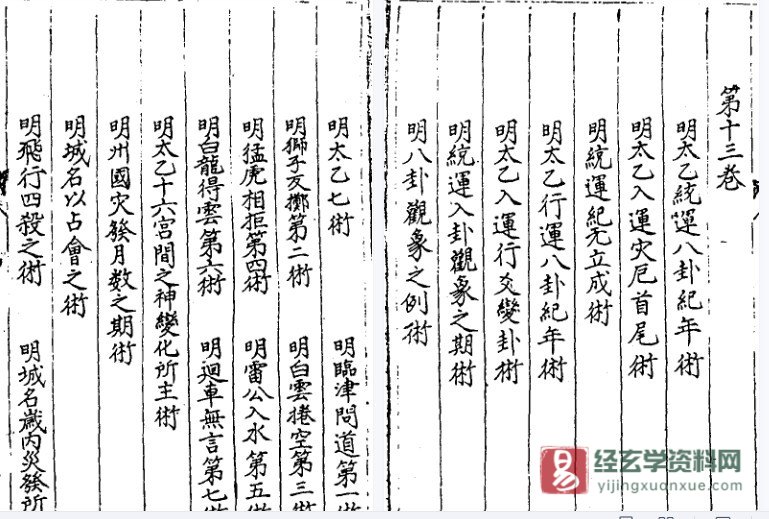 第十三卷
明太乙統運八卦紀年術
明太乙入運灾厄首尾術
明統運紀元立成術
明太乙行運八卦紀年術
明太乙入運行爻變卦術
明統運入卦觀象之期術
明八卦觀象之例術
明太乙七術
明臨津問道第一術
明獅子反擲第二術
明白雲捲空第三術
明猛虎相拒第四術
明雷公入水第五術
明白龍得雲第六術
明迴車無言第七術
明太乙十六宮間之神變化所主術
明州國灾發月数之期術
明城名以占會之術
明飛行四殺之術
明城名歲内災發所
易
经玄学资料网
yijingxuanxue.com